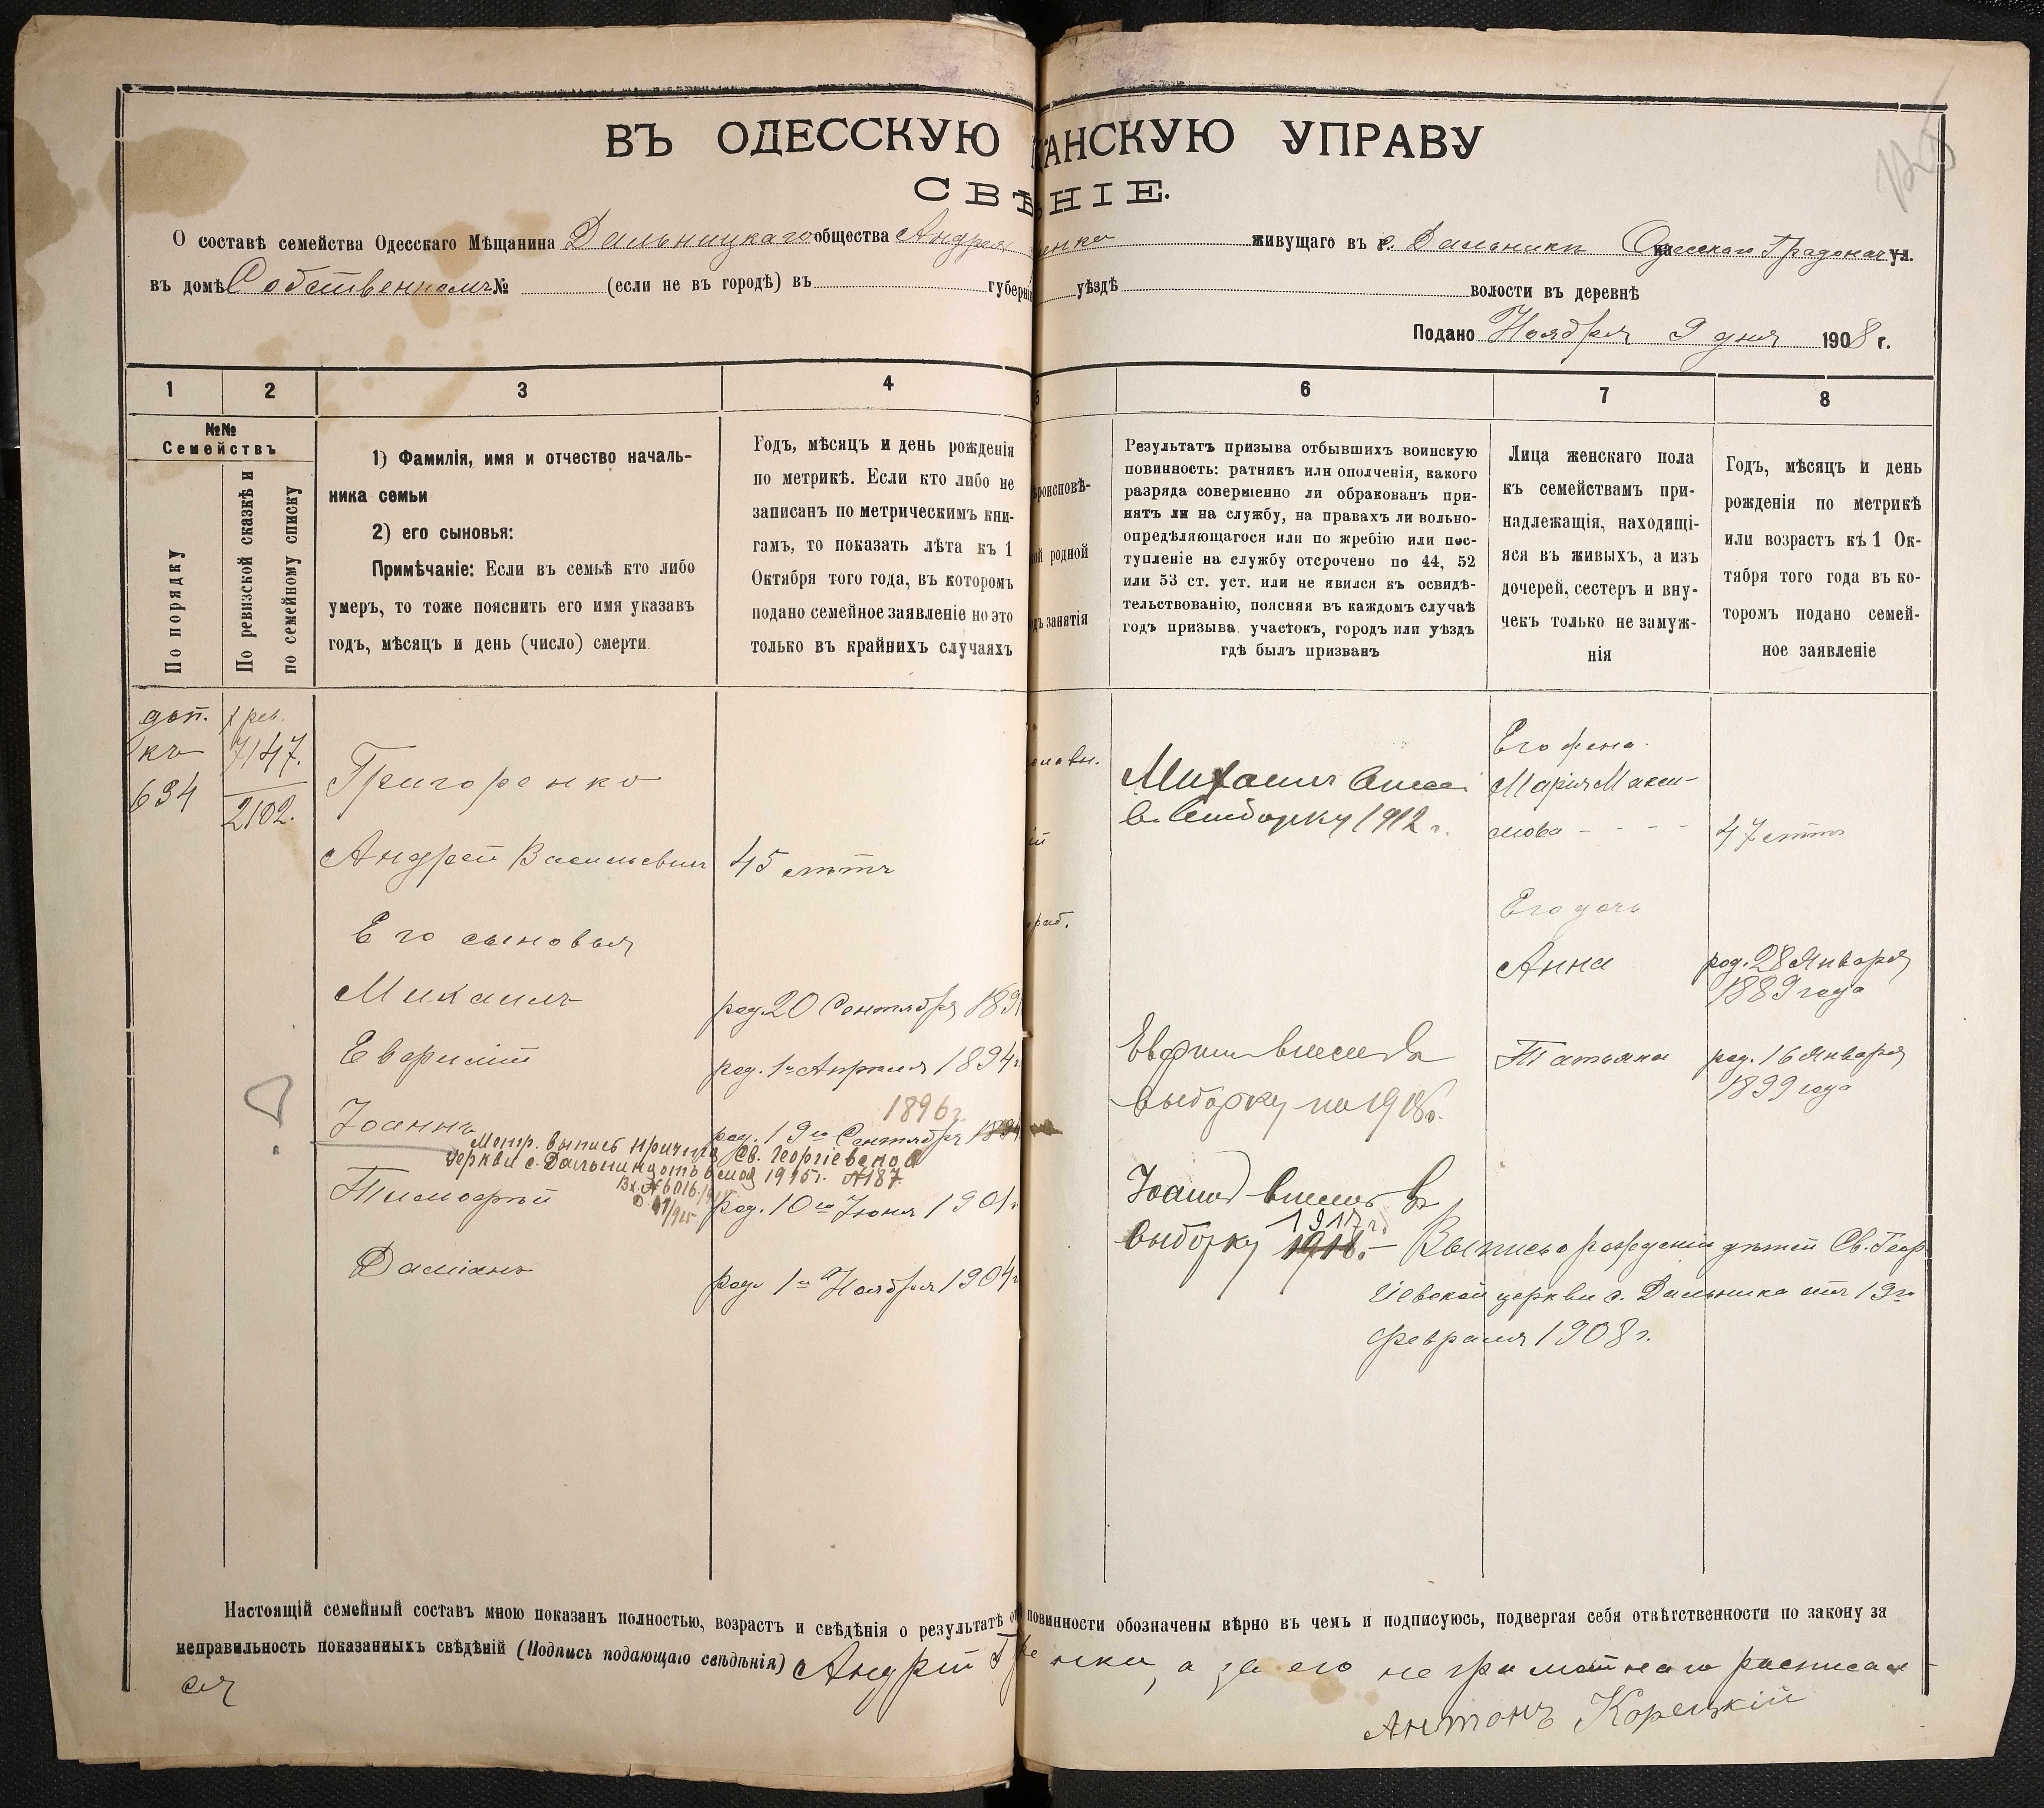 ВЪ ОДЕССКУЮ АНСКУЮ УПРАВУ
СВѢ НІЕ.
О составѣ семейства Одесскаго Мѣщанина Дальницкаго общества Андрея енко живущаго въ с. Дальникъ Одесскаго Градонач ул.
въ домѣ Собственномъ № (если не въ городѣ) въ губерні уѣздѣ волости въ деревнѣ
Подано Ноября 9 дня 1908 г.
1 2 3 4 5 6 7 8
№№
Семействъ
По порядку
По ревизской сказкѣ и
по семейному списку
1) Фамилія, имя и отчество началь-
ника семьи
2) его сыновья:
Примѣчаніе: Если въ семьѣ кто либо
умеръ, то тоже пояснить его имя указавъ
годъ, мѣсяцъ и день (число) смерти
Годъ, мѣсяцъ и день рожденія
по метрикѣ. Если кто либо не
записанъ по метрическимъ кни-
гамъ, то показать лѣта къ 1
Октября того года, въ которомъ
подано семейное заявленіе но это
только въ крайнихъ случаяхъ
роисповѣ-
ой родной
дъ занятія
Результатъ призыва отбывшихъ воинскую
повинность: ратникъ или ополченія, какого
разряда совершенно ли обракованъ при-
нятъ ли на службу, на правахъ ли вольно-
опредѣляющагося или по жребію или пос-
тупленіе на службу отсрочено по 44, 52
или 53 ст. уст. или не явился къ освидѣ-
тельствованію, поясняя въ каждомъ случаѣ
годъ призыва участокъ, городъ или уѣздъ
гдѣ былъ призванъ
Лица женскаго пола
къ семействамъ при-
надлежащія, находящі-
яся въ живыхъ, а изъ
дочерей, сестеръ и вну-
чекъ только не замуж-
нія
Годъ, мѣсяцъ и день
рожденія по метрикѣ
или возрастъ къ 1 Ок-
тября того года въ ко-
торомъ подано семей-
ное заявленіе
доп.
къ
634
X рев.
7147.
2102.
Григоренко
Андрей Васильевич
45 лѣтъ
Его сыновья
Михаилъ
род. 20 Сентября 189
Евфимій
род. 1го Апреля 1894 г
Іоаннъ
1896 г.
род. 19го Сентября 1894
Метр. выпись причта Св. Георгіевской
церкви с. Дальника отъ 1915г. №187
Вх. №6016
Тимофей
род. 10го Іюня 1901 г
Даміанъ
род. 1го Ноября 1904 г
Михаилъ внес
в выборку 1912 г.
Евфим внесен в
выборку на 1916 г.
Іоанн внесен в
1917 г.
выборку 1918. – Выпись о рожденіи дѣтей Св. Геор
гіевской церкви с. Дальника отъ 19го
февраля 1908 г.
Его жена
Марія Макси-
мова - - - -
47 лѣтъ
Его дочь
Анна
род. 28 Января
1889 года
Татьяна
род. 16 Января
1899 года
Настоящій семейный составъ мною показанъ полностью, возрастъ и свѣдѣнія о результатѣ о повинности обозначены вѣрно въ чемъ и подписуюсь, подвергая себя отвѣтственности по закону за
неправильность показанныхъ свѣдѣній (Подпись подающаго свѣдѣнія) Андрій Гр енко, а за его неграмотнаго расписал
ся
Антонъ Корецкій